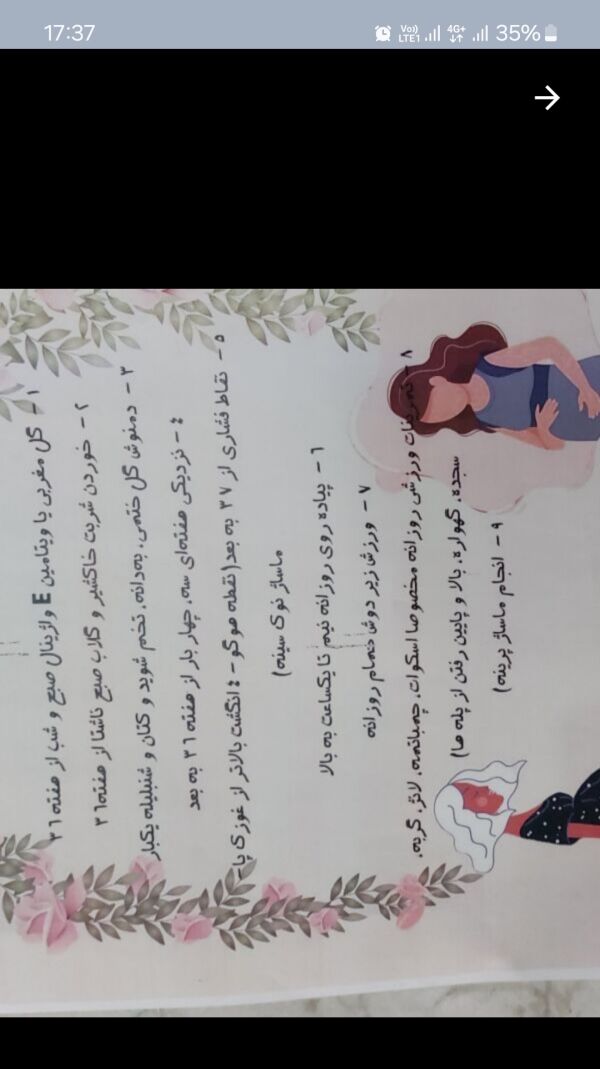 17:37
Vo)) LTE1 4G+ 35%
۱ - گل مغربی یا ویتامین E واژینال صبح و شب از هفته ۳۶
۲ - خوردن شربت خاکشیر و گلاب صبح ناشتا از هفته ۳۶
۳ - دمنوش گل ختمی، به دانه، تخم شوید و کتان و شنبلیله یکبار
۴ - نزدیکی هفته ای سه، چهار بار از هفته ۳۶ به بعد
۵ - نقاط فشاری از ۳۷ به بعد (نقطه هوگو - ۴ انگشت بالاتر از غوزک پا -
ماساژ نوک سینه)
۶ - پیاده روی روزانه نیم تا یکساعت به بالا
۷ - ورزش زیر دوش حمام روزانه
۸ - تمرینات ورزشی روزانه مخصوصا اسکوات، چمباتمه، لانژ، گربه،
سجده، گهواره، بالا و پایین رفتن از پله ها)
۹ - انجام ماساژ پرینه)